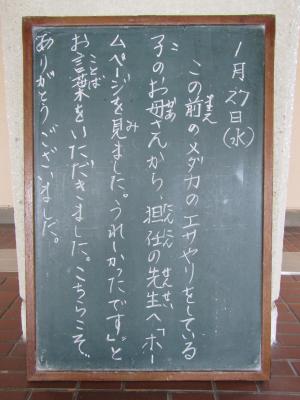 1月27日(水)
この前のメダカのエサやりをしている
子のお母さんから、担任の先生へ「ホー
ムページを見ました。うれしかったです」と
お言葉をいただきました。こちらこそ、
ありがとうございました。